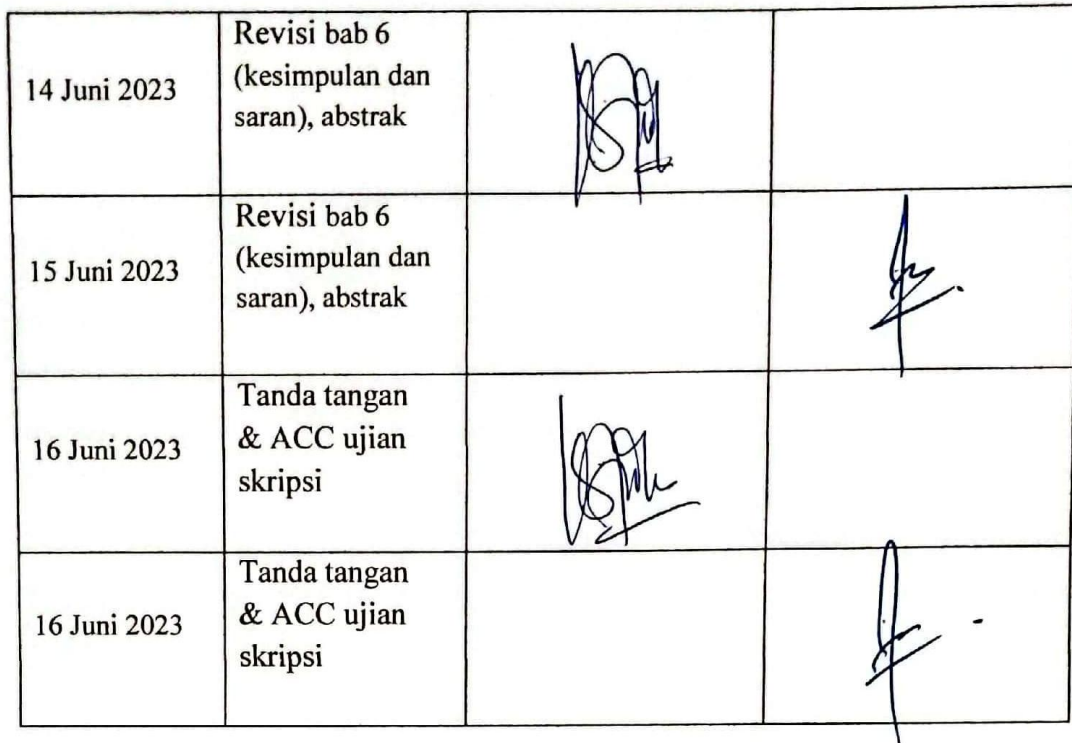 14 Juni 2023
Revisi bab 6
(kesimpulan dan
saran), abstrak
15 Juni 2023
Revisi bab 6
(kesimpulan dan
saran), abstrak
16 Juni 2023
Tanda tangan
& ACC ujian
skripsi
16 Juni 2023
Tanda tangan
& ACC ujian
skripsi